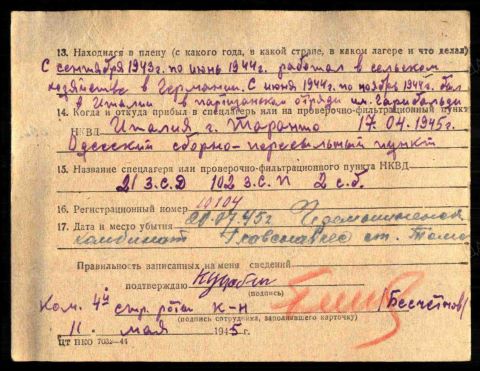 13. Находился в плену (с какого года, в какой стране, в каком лагере и что делал)
С сентября 1943г. по июнь 1944г. работал в сельском
хозяйстве в Германии. С июня 1944г. по ноябрь 1944г. был
в Италии в партизанском отряде им. Гарибальди
14. Когда и откуда прибыл в спецлагерь или на проверочно-фильтрационный пункт
НКВД Италия г. Таранто 17.04.1945г.
Одесский сборно-пересыльный пункт
15. Название спецлагеря или проверочно-фильтрационного пункта НКВД
21 З.С.Д 102 З.С.П 2 с.б.
16. Регистрационный номер 10104
17. Дата и место убытия 20.07.45г
комбинат ст.
Правильность записанных на меня сведений
подтверждаю
(подпись)
Ком. 4й стр. роты к-н /Бесчётнов/
(подпись сотрудника, заполнявшего карточку)
11 мая 1945 г.
ЦТ НКО 7032-44